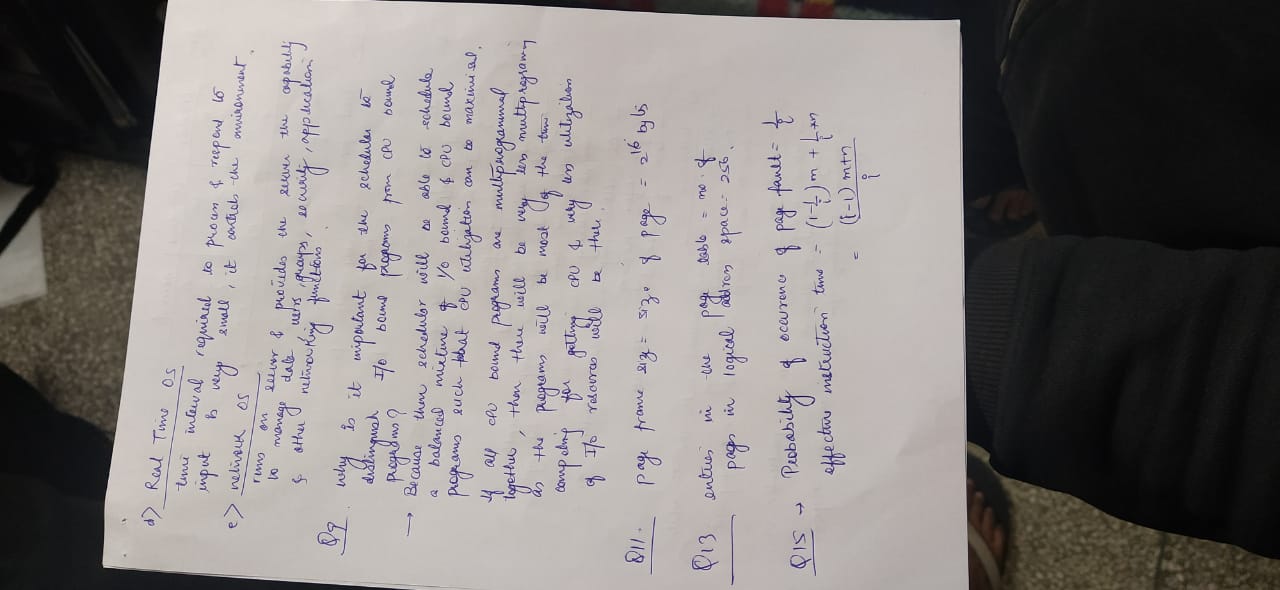 d) Real Time OS
time interval required to process & respond to
input is very small, it controls the environment.
e) network OS
runs on server & provides the server the capability
to manage data, users, groups, security, application
& other networking functions.
Q9. why is it important for the scheduler to
distinguish I/O bound programs from CPU bound
programs?
→ Because then schedulor will be able to schedule
a balanced mixture of I/O bound & CPU bound
programs such that CPU utilization can be maximised.
If all CPU bound programs are multiprogrammed
together, then there will be very less multiprogramming
as the programs will be most of the time
competing for getting CPU & very less utilization
of I/O resources will be there.
Q11. page frame size = size of page = 2^16 bytes
Q13 entries in the page table = no. of
pages in logical address space = 256.
Q15 → Probability of occurence of page fault = 1/i
effective instruction time = (1-1/i)m + 1/i *n
= (i-1)m+n / i